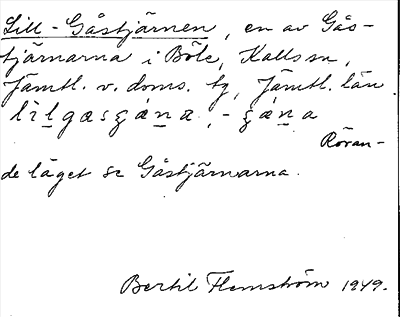 Lill-Gåstjärnen, en av Gås-
tjärnarna i Böle, Kalls sn,
Jämtl. v. doms. tg, Jämtl. län
Röran-
de läget se Gåstjärnarna.
Bertil Flemström 1949.